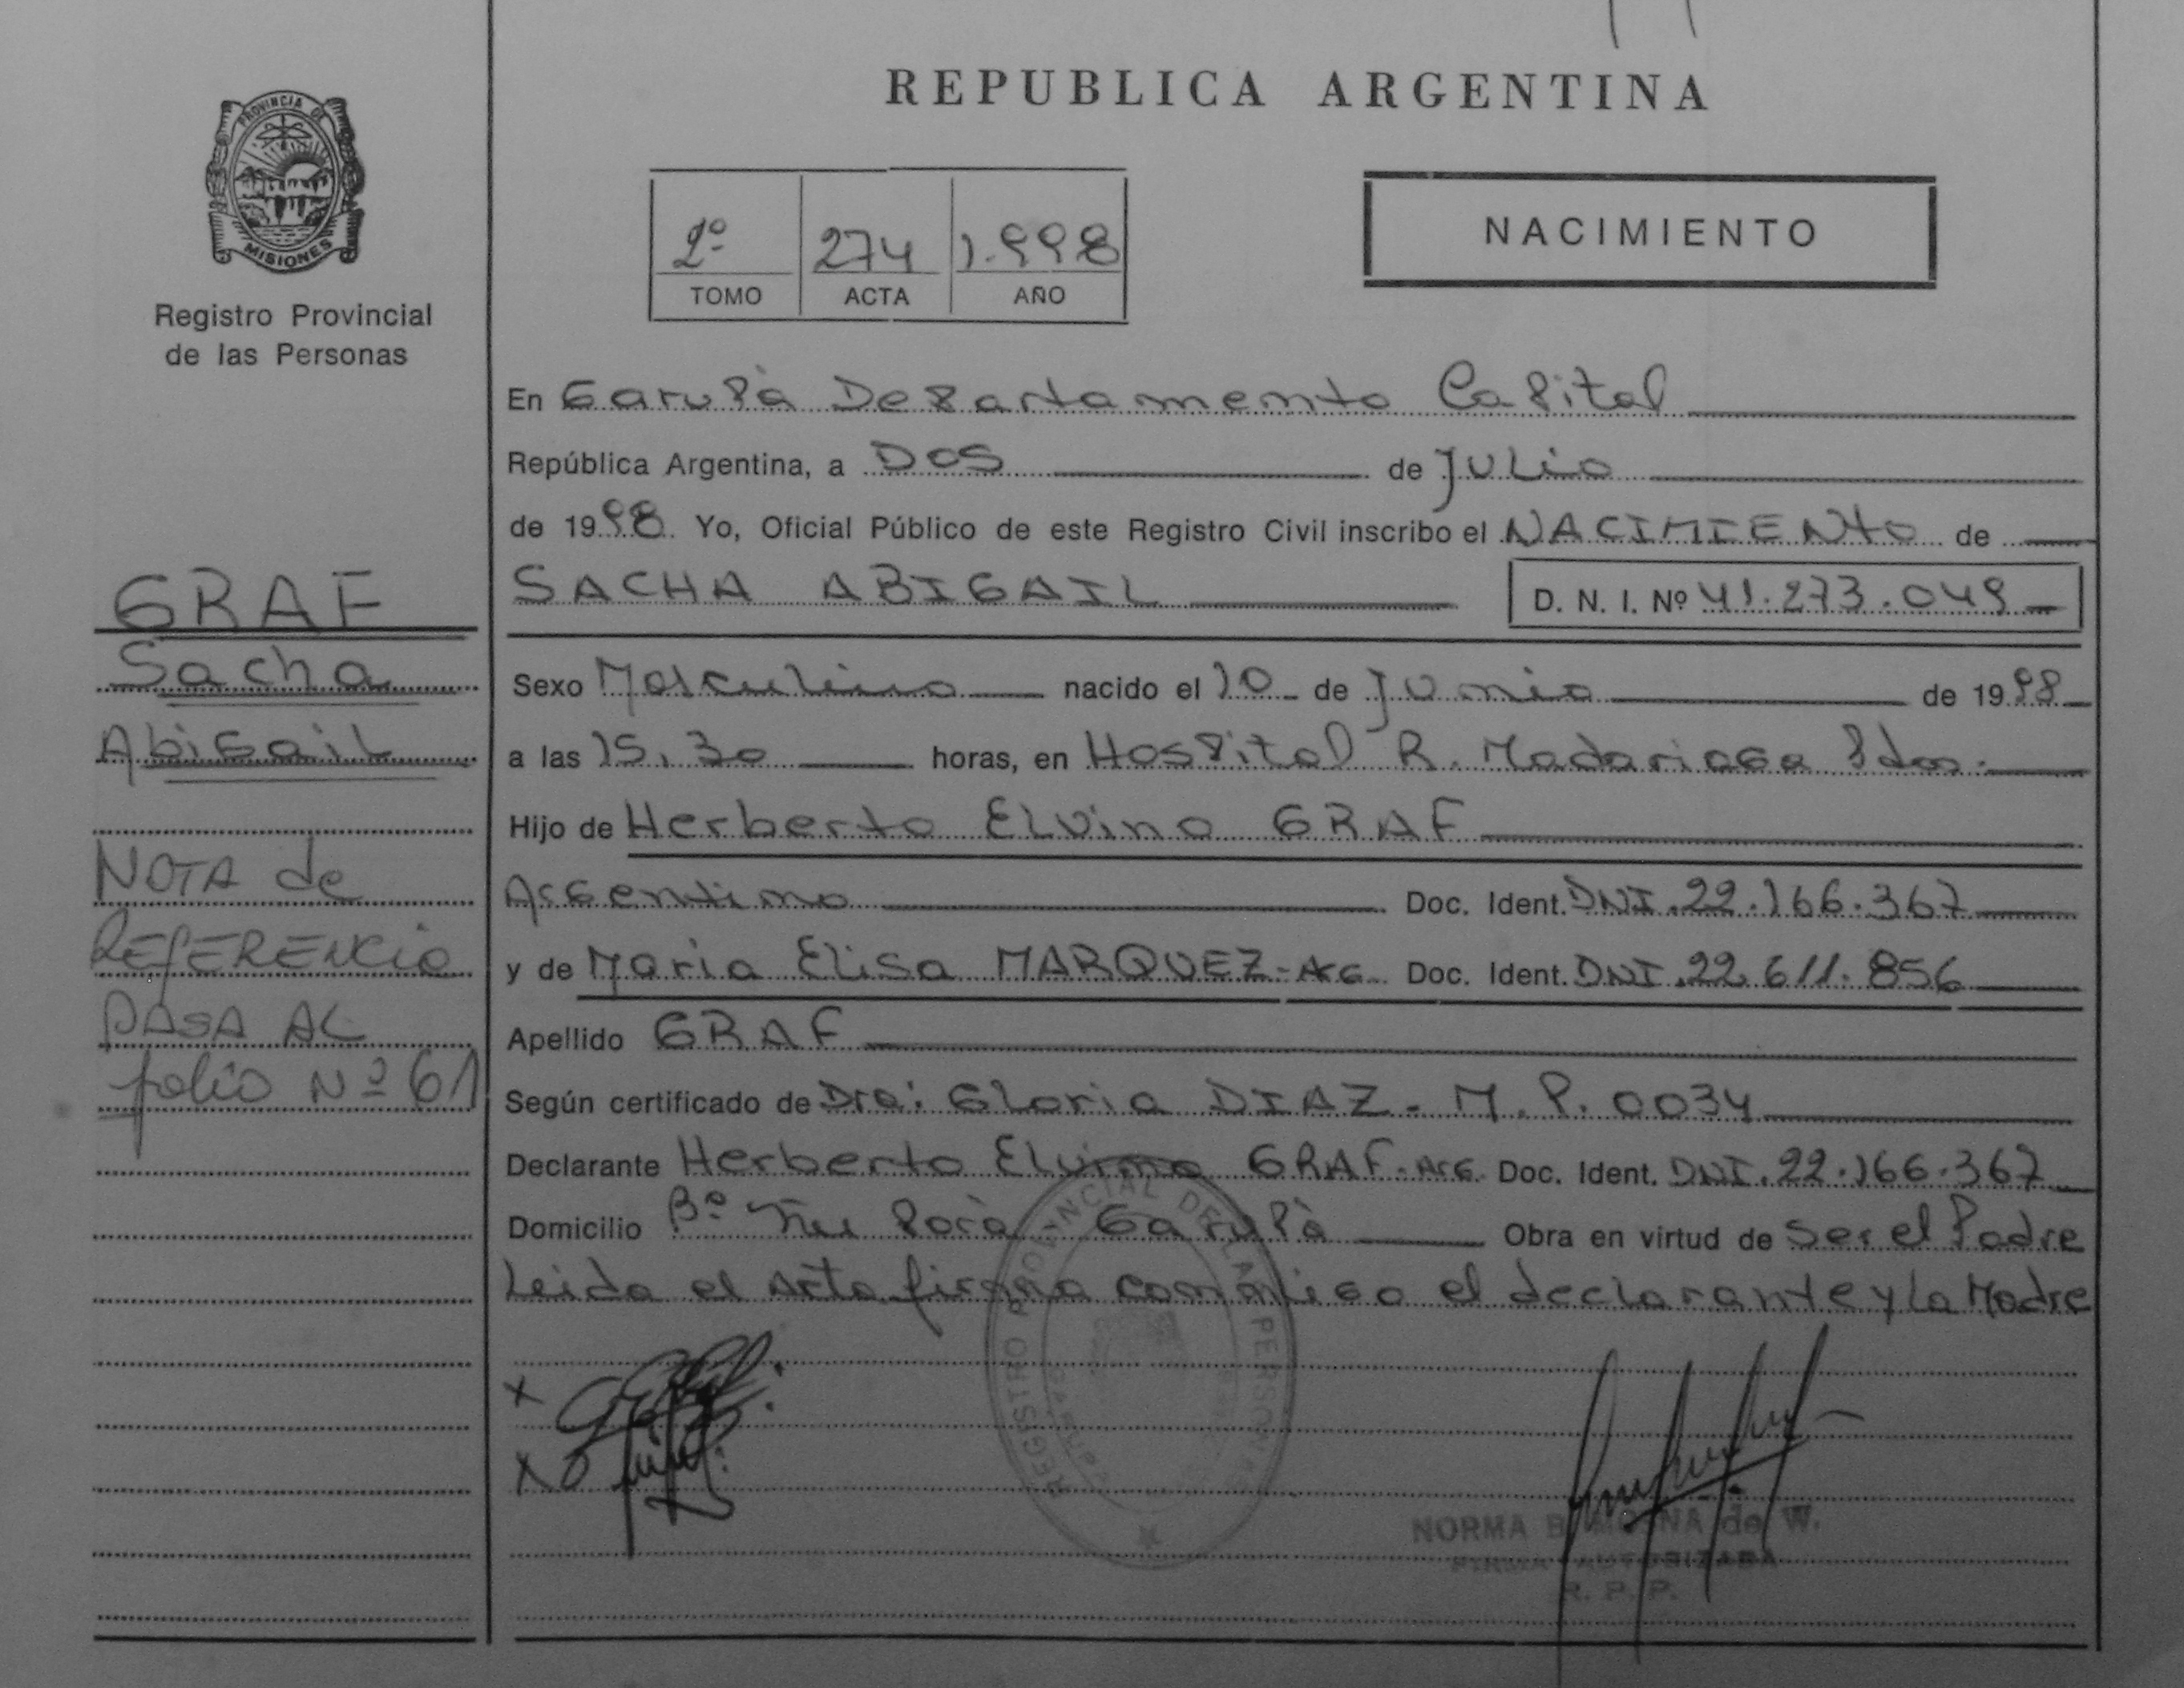 REPUBLICA ARGENTINA
PROVINCIA DE
MISIONES
Registro Provincial
de las Personas
2º 274 1.998
TOMO ACTA AÑO
NACIMIENTO
En Garupà Departamento Capital
República Argentina, a Dos de Julio
de 1998. Yo, Oficial Público de este Registro Civil inscribo el NACIMIENto de
SACHA ABIGAIL D. N. I. Nº 41.273.049
Sexo Masculino nacido el 10 de Junio de 1998
a las 15,30 horas, en Hospital R. Madariaga Pdas.
Hijo de Herberto ELvino GRAF
Argentino Doc. Ident. DNI.22.166.367
y de Maria Elisa MARQUEZ-Arg. Doc. Ident. DNI.22.611.856
Apellido GRAF
Según certificado de Dra: Gloria DIAZ-M.P. 0034
Declarante Herberto Elvino GRAF-Arg. Doc. Ident. DNI.22.166.367
Domicilio Bº Ñu Porà - Garupà Obra en virtud de ser el Padre
Leida el Acta firma conmigo el declarante y La Madre
GRAF
Sacha
Abigail
NOTA de
REfERENCia
PASA AL
folio Nº 61
REGISTRO PROVINCIAL DE LAS PERSONAS
NORMA B. de W.
FIRMA AUTORIZADA
R. P. P.